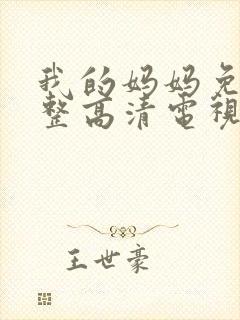 我的妈妈免
整高清電視
王世豪